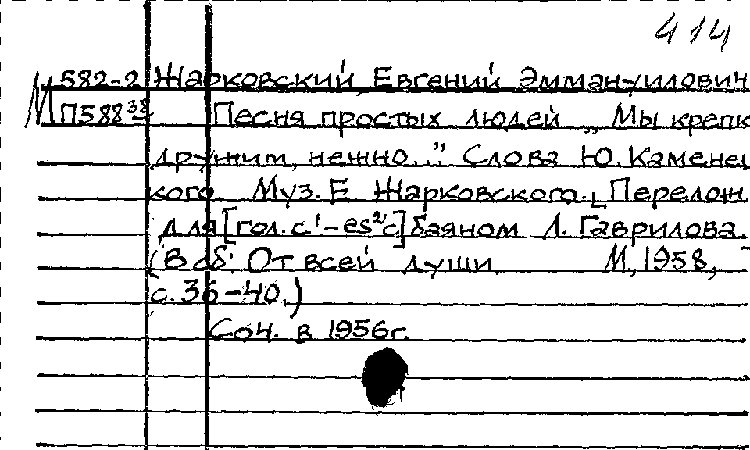 414
582-2 Жарковский Евгений Эммануилович
М П588³⁸ Песня простых людей „Мы крепк
дружим, нежно..." Слова Ю. Каменец
кого Муз. Е Жарковского. Перелож.
для [гол. c'-es²] с баяном Л. Гаврилова.
(В сб: От всей души М, 1958,
с. 36-40.)
Соч. в 1956г.